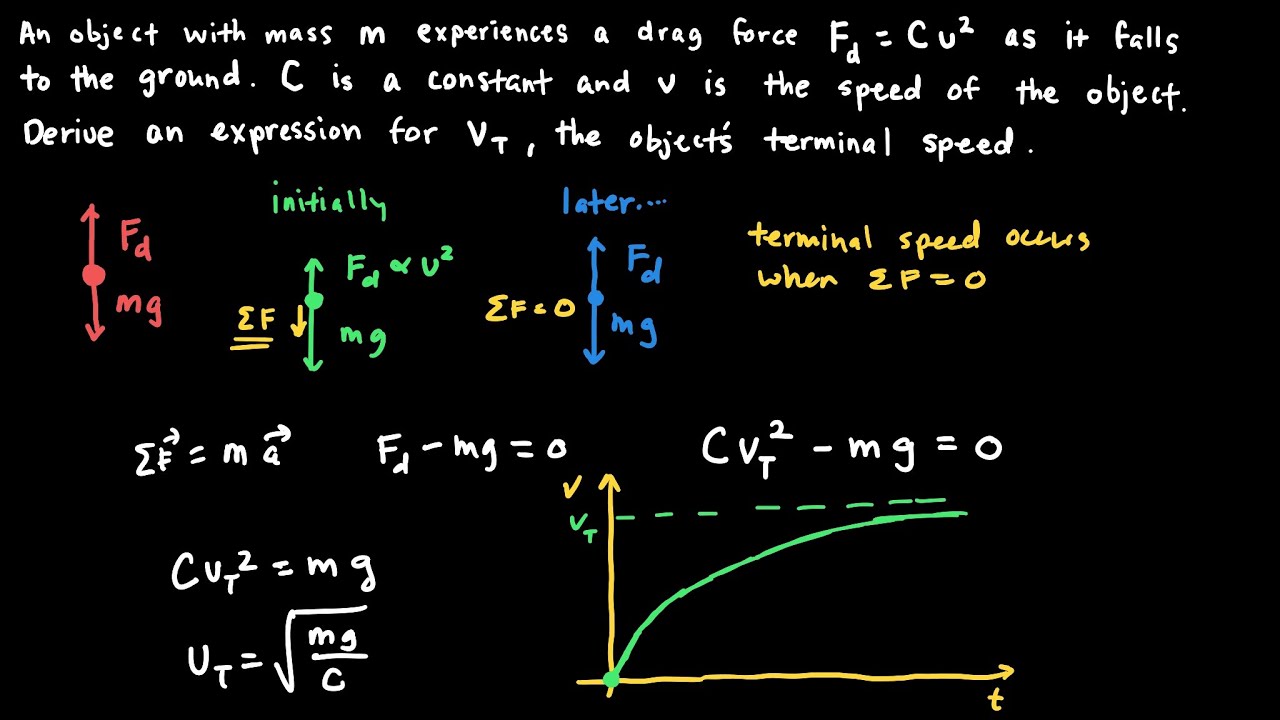 An object with mass m experiences a drag force F_d = Cv² as it falls
to the ground. C is a constant and v is the speed of the object.
Derive an expression for V_T, the object's terminal speed.
initially
later....
F_d
mg
F_d ∝ v²
ΣF
mg
F_d
ΣF=0
mg
terminal speed occurs
when ΣF=0
ΣF⃗ = m a⃗
F_d - mg = 0
Cv_T² - mg = 0
v
v_T
t
Cv_T² = mg
v_T = √(mg/C)